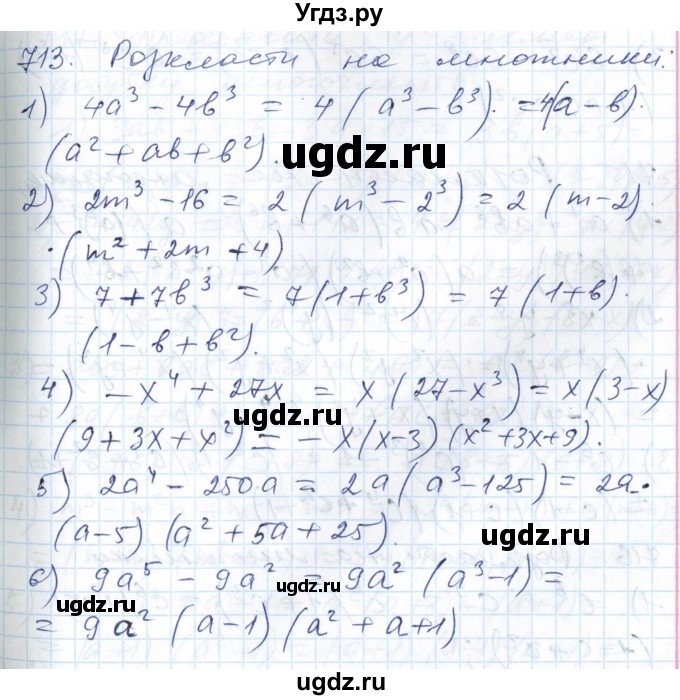 Угдз.ру
713. Розкласти на множники:
1) 4a³ - 4b³ = 4(a³ - b³). = 4(a - b).
(a² + ab + b²).
ugdz.ru
2) 2m³ - 16 = 2(m³ - 2³) = 2(m - 2)
·(m² + 2m + 4)
3) 7 + 7b³ = 7(1 + b³) = 7(1 + b).
(1 - b + b²).
ugdz.ru
4) -x⁴ + 27x = x(27 - x³) = x(3 - x)
ugdz.ru
(9 + 3x + x²) = -x(x - 3)(x² + 3x + 9).
5) 2a⁴ - 250a = 2a(a³ - 125) = 2a·
(a - 5)(a² + 5a + 25).
ugdz.ru
6) 9a⁵ - 9a² = 9a²(a³ - 1) =
ugdz.ru
= 9a²(a - 1)(a² + a + 1)
ugdz.ru